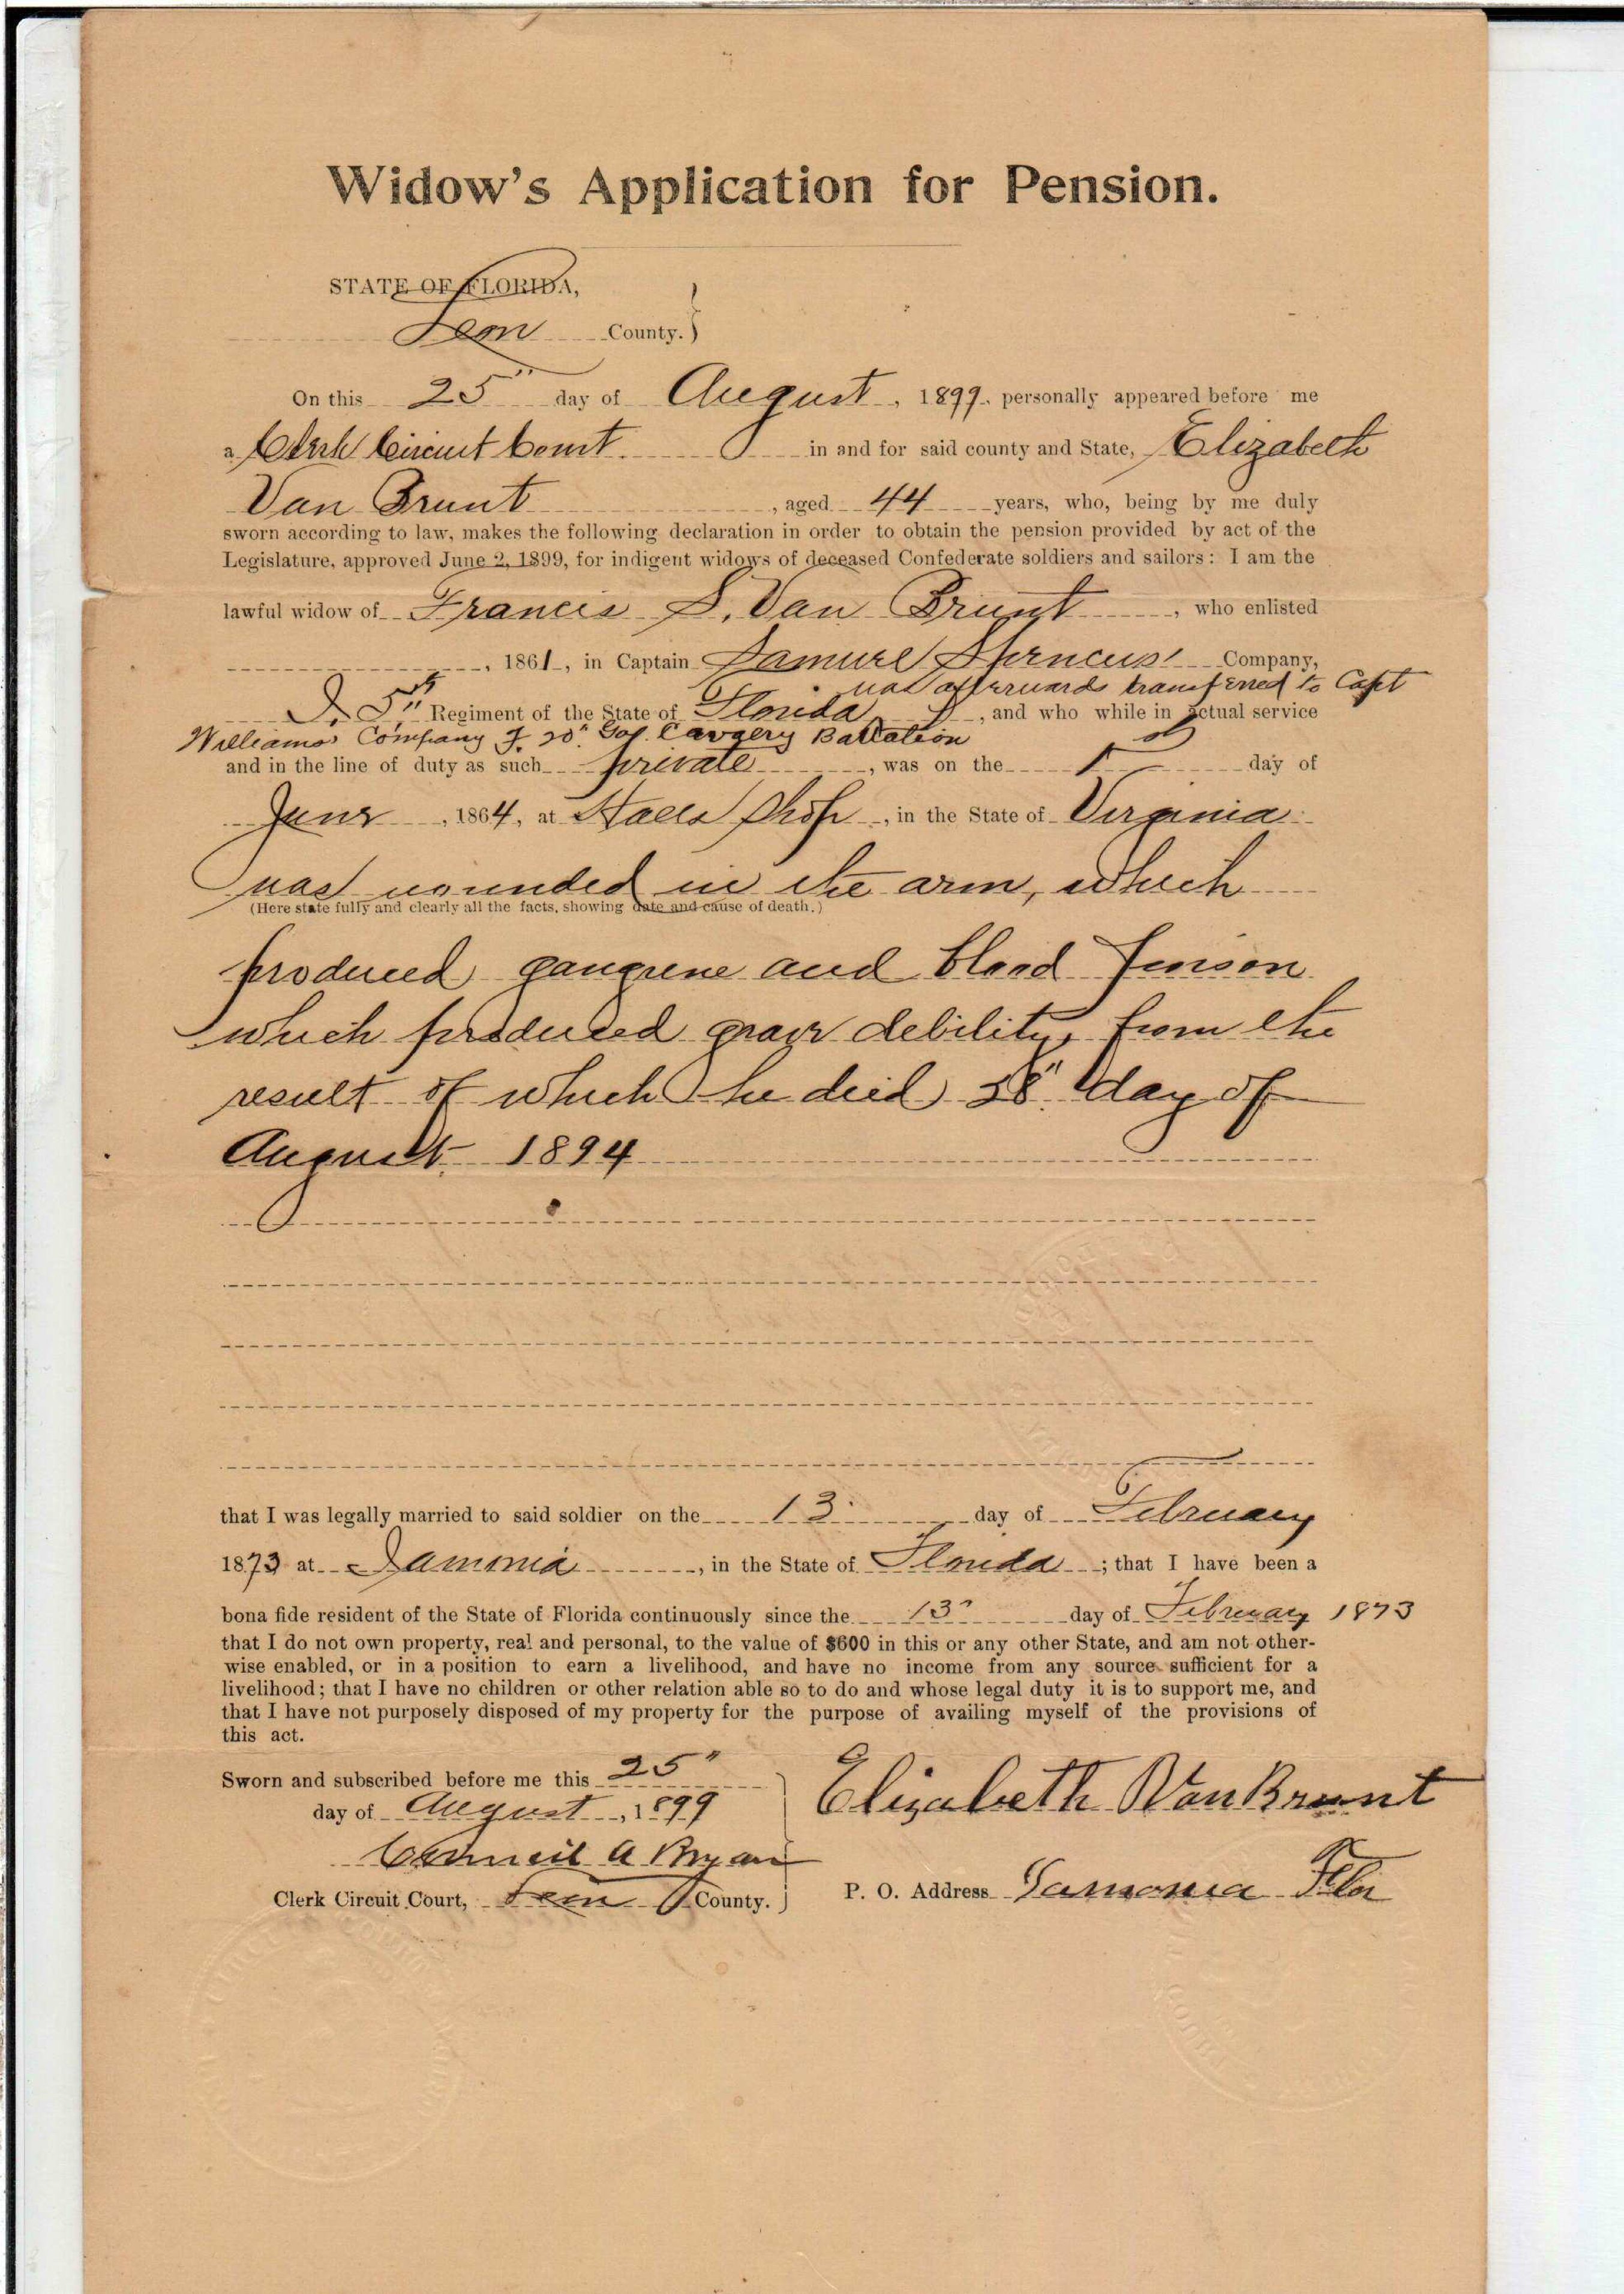 Widow's Application for Pension.
STATE OF FLORIDA,
Leon County.
On this 25" day of August, 1899, personally appeared before me
a Clerk Circuit Court in and for said county and State, Elizabeth
Van Brunt, aged 44 years, who, being by me duly
sworn according to law, makes the following declaration in order to obtain the pension provided by act of the
Legislature, approved June 2, 1899, for indigent widows of deceased Confederate soldiers and sailors: I am the
lawful widow of Francis S. Van Brunt, who enlisted
, 1861, in Captain Samuel Spencers' Company,
was afterwards transferred to Capt
5th Regiment of the State of Florida, and who while in actual service
Williams Company F. 20" Ga. Cavalry Battalion
and in the line of duty as such private, was on the 1st day of
June, 1864, at Halls Shop, in the State of Virginia
was wounded in the arm, which
(Here state fully and clearly all the facts, showing date and cause of death.)
produced gangrene and blood poison
which produced grave debility, from the
result of which he died 28" day of
August 1894
that I was legally married to said soldier on the 13 day of February
1873 at Iamonia, in the State of Florida; that I have been a
bona fide resident of the State of Florida continuously since the 13" day of February 1873
that I do not own property, real and personal, to the value of $600 in this or any other State, and am not other-
wise enabled, or in a position to earn a livelihood, and have no income from any source sufficient for a
livelihood; that I have no children or other relation able so to do and whose legal duty it is to support me, and
that I have not purposely disposed of my property for the purpose of availing myself of the provisions of
this act.
Sworn and subscribed before me this 25"
day of August, 1899
Council A Bryan
Clerk Circuit Court, Leon County.
Elizabeth Van Brunt
P. O. Address Iamonia Fla